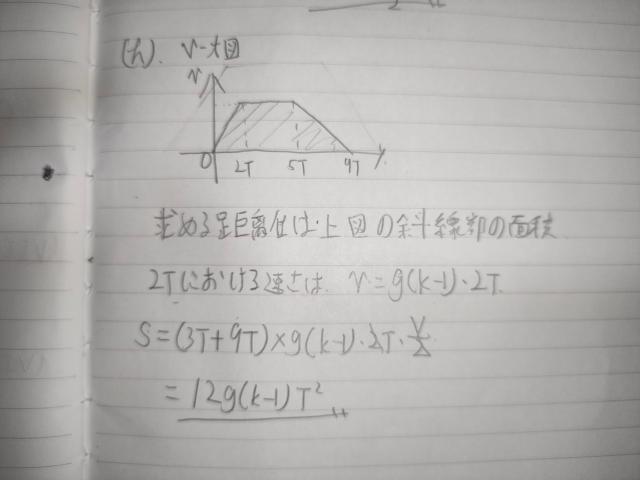 (h). v-t図
v
0 2T 5T 9T t
求める距離は上図の斜線部の面積
2Tにおける速さは v=g(k-1)・2T
S=(3T+9T)×g(k-1)・2T・1/2
=12g(k-1)T²